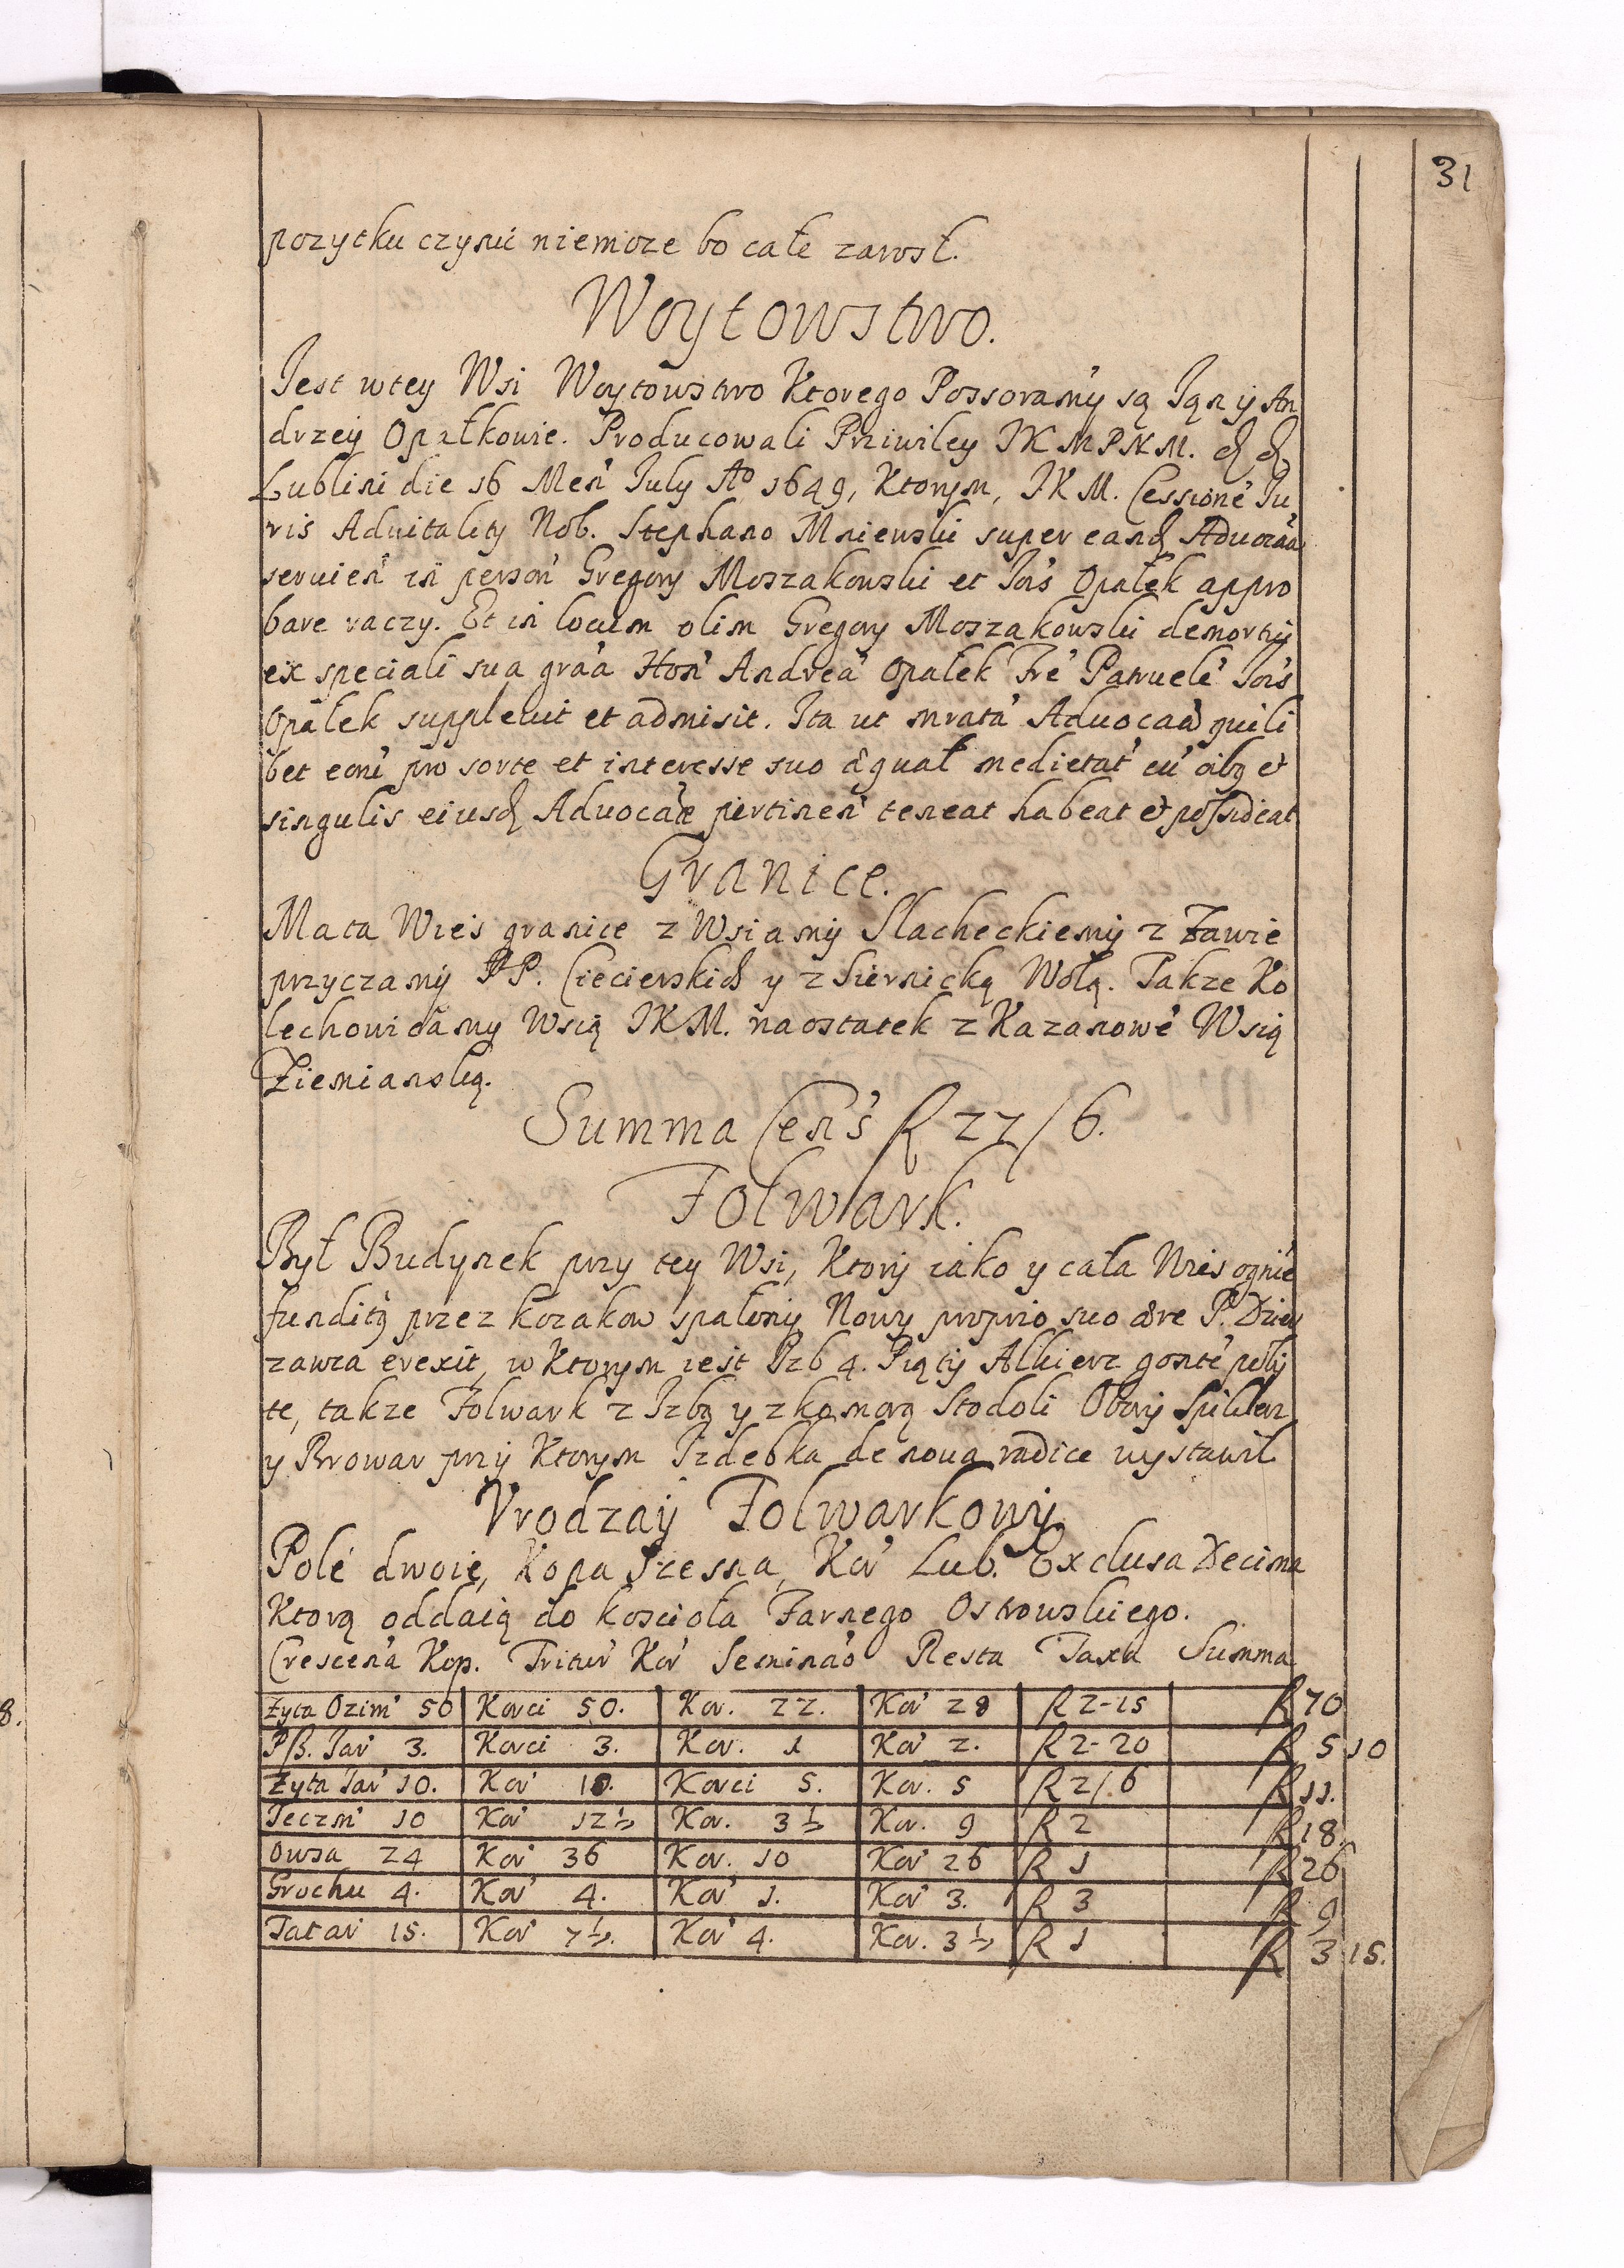 31
pozytku czynić niemoze bo całe zarosł.
Woytowstwo.
Jest wtey Wsi Woytowstwo Ktorego Possoramy są Jan ÿ An
drzeÿ Opałkowie. Producowali Priwiley JKMPNM.
Lublini die 16 Men July Ao 1649, Ktorym, JKM. Cessione Ju
ris Aduitality Nob. Stephano Mniewski super eand Aduocaa
seruien in person Gregory Moszakowski et Jois Opałek appro
bare raczy. Et in locum olim Gregory Moszakowski demortÿ
ex speciali sua graa Hon Andrea Opałek Fre Patruele Jois
Opałek suppleuit et admisit. Ita ut mrata Aduocaa quili
bet eoni pro sorte et interesse suo æqual medietat cu oibq et
singulis eiusd Aduocae pertinen teneat habeat et possideat
Granice.
Ma ta Wies granice z Wsiamÿ Slacheckiemÿ z Zawie
przyczamÿ PP. Ciecierskich y z Siernicką Wolą. Takze Ko
lechowicamy Wsią JKM. naostatek z Kazanowe Wsią
Ziemianską.
Summa Cens R 22/6.
Folwark.
Był Budynek przy tey Wsi, Ktorÿ iako y cała Wies ognie
funditq przez kozakow spalonÿ Nowy proprio suo ære P. Dzier
zawca erexit, w Ktorym iest Izb 4. Piątÿ Alkierz gonte pobÿ
te, takze Folwark z Izbą y z komorą Stodoli Oborÿ Spiklerz
y Browar przÿ Ktorym Izdebka de noua radice wystawił
Vrodzaÿ Folwarkowÿ
Pole dwoie, Kopa Scesna, Kor Lub. Exclusa Decima
Ktorą oddaią do koscioła Farnego Ostrowskiego.
Crescena Kop. Tritur Kor Seminao Resta Taxa Summa
Zyta Ozim 50 Korci 50. Kor. 22. Kor 28 R 2-15 R 70
Psz. Jar 3. Korci 3. Kor. 1 Kor 2. R 2-20 R 5 10
Zyta Jar 10. Kor 10. Korci 5. Kor. 5 R 2/6 R 11.
Jeczm 10 Kor 12½ Kor. 3½ Kor. 9 R 2 R 18.
Owsa 24 Kor 36 Kor. 10 Kor 26 R 1 R 26
Grochu 4. Kor 4. Kor 1. Kor 3. R 3 R 9
Tatar 15. Kor 7½. Kor 4. Kor. 3½ R 1 R 3 15.
8.